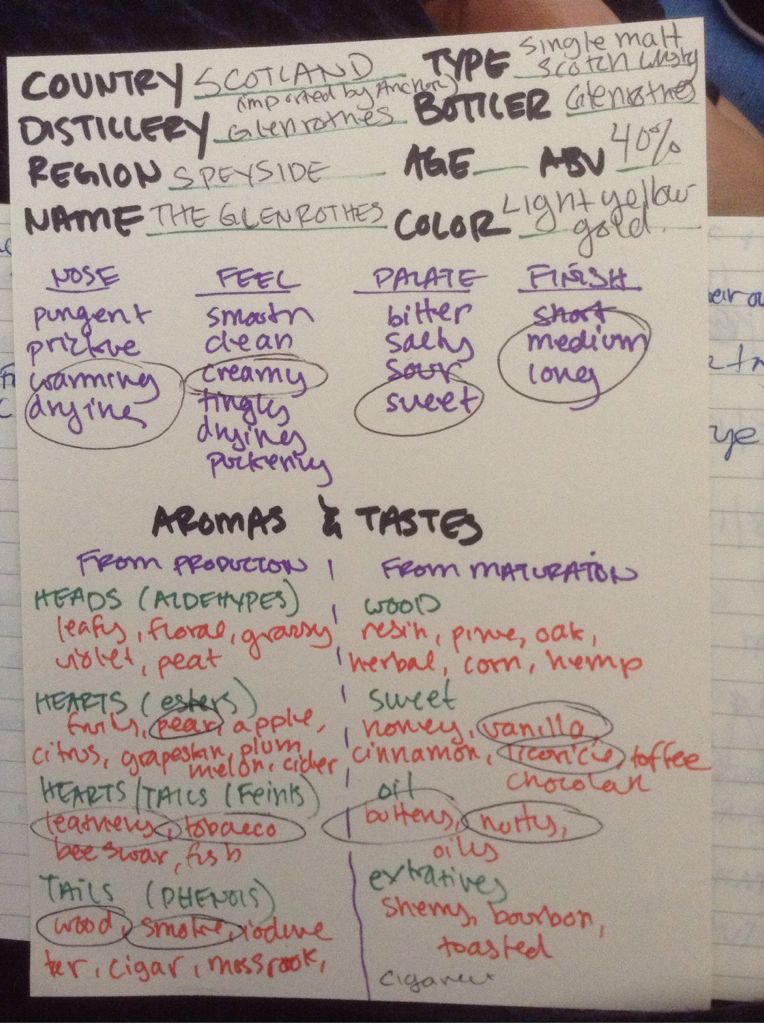 COUNTRY SCOTLAND TYPE Single malt Scotch Whisky
(imported by Anchor)
DISTILLERY Glenrothes BOTTLER Glenrothes
REGION SPEYSIDE AGE ABV 40%
NAME THE GLENROTHES COLOR Light yellow gold
NOSE FEEL PALATE FINISH
pungent smooth bitter short
prickle clean salty medium
warming creamy sour long
drying tingly sweet
drying
puckering
AROMAS & TASTES
FROM PRODUCTON FROM MATURATION
HEADS (ALDEHYPES) WOOD
leafy, floral, grassy resin, pine, oak,
violet, peat herbal, corn, hemp
HEARTS (esters) sweet
fruity, pear, apple, honey, vanilla
citrus, grapeskin, plum cinnamon, licoricie, toffee
melon, cider chocolate
HEARTS/TAILS (Feints) oil
leathery, tobacco buttery, nutty,
beeswax, fish oily
TAILS (PHENOLS) extratives
wood, smoke, iodine sherry, bourbon,
tar, cigar, toasted